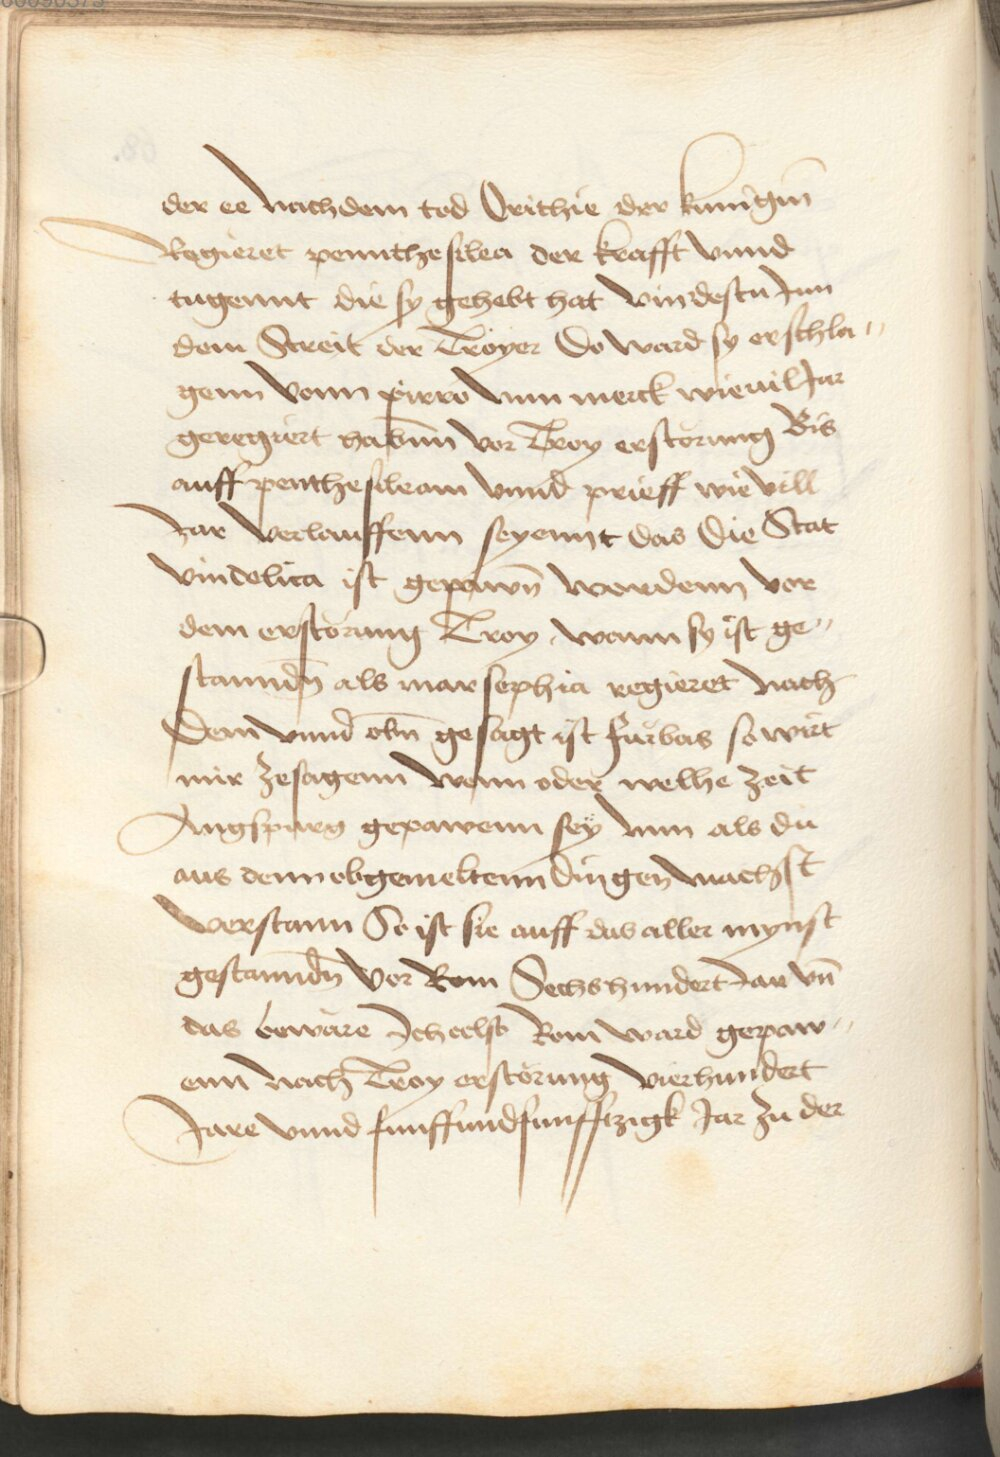 der ee nach dem tod Orithie der kunigin̄
Regieret pennthesilea der krafft vnnd
tugennt die sy gehebt hat vindestu Jnn
dem Streit der Troyer Do ward sy erschla„
genn vonn pirro Nun merck wieuil Jar
geregiert habn̄n vor Troy erstörung Bis
auff penthesileam vnnd prieff wie vill
Jar verlauffenn seyennt das Die Stat
vindelica ist gepawn̄ wordenn vor
dem erstörung Troy wann sy ist ge„
stanndn̄ als marsephia regieret Nach
Dem vnnd obn̄ gesagt ist fürbas so wirt
mir zesagenn wenn oder welhe zeit
Augspurg gepawenn seÿ Nun als du
aus denn obgemeltenn dingen machst
verstann So ist sie auff das aller mynst
gestanndn̄ vor Rom Sechshundert Jar vn̄
das beware Jch also Rom ward gepaw„
enn nach Troy erstörung vierhundert
Jare vnnd funffundfunfftzigk Jar zu der